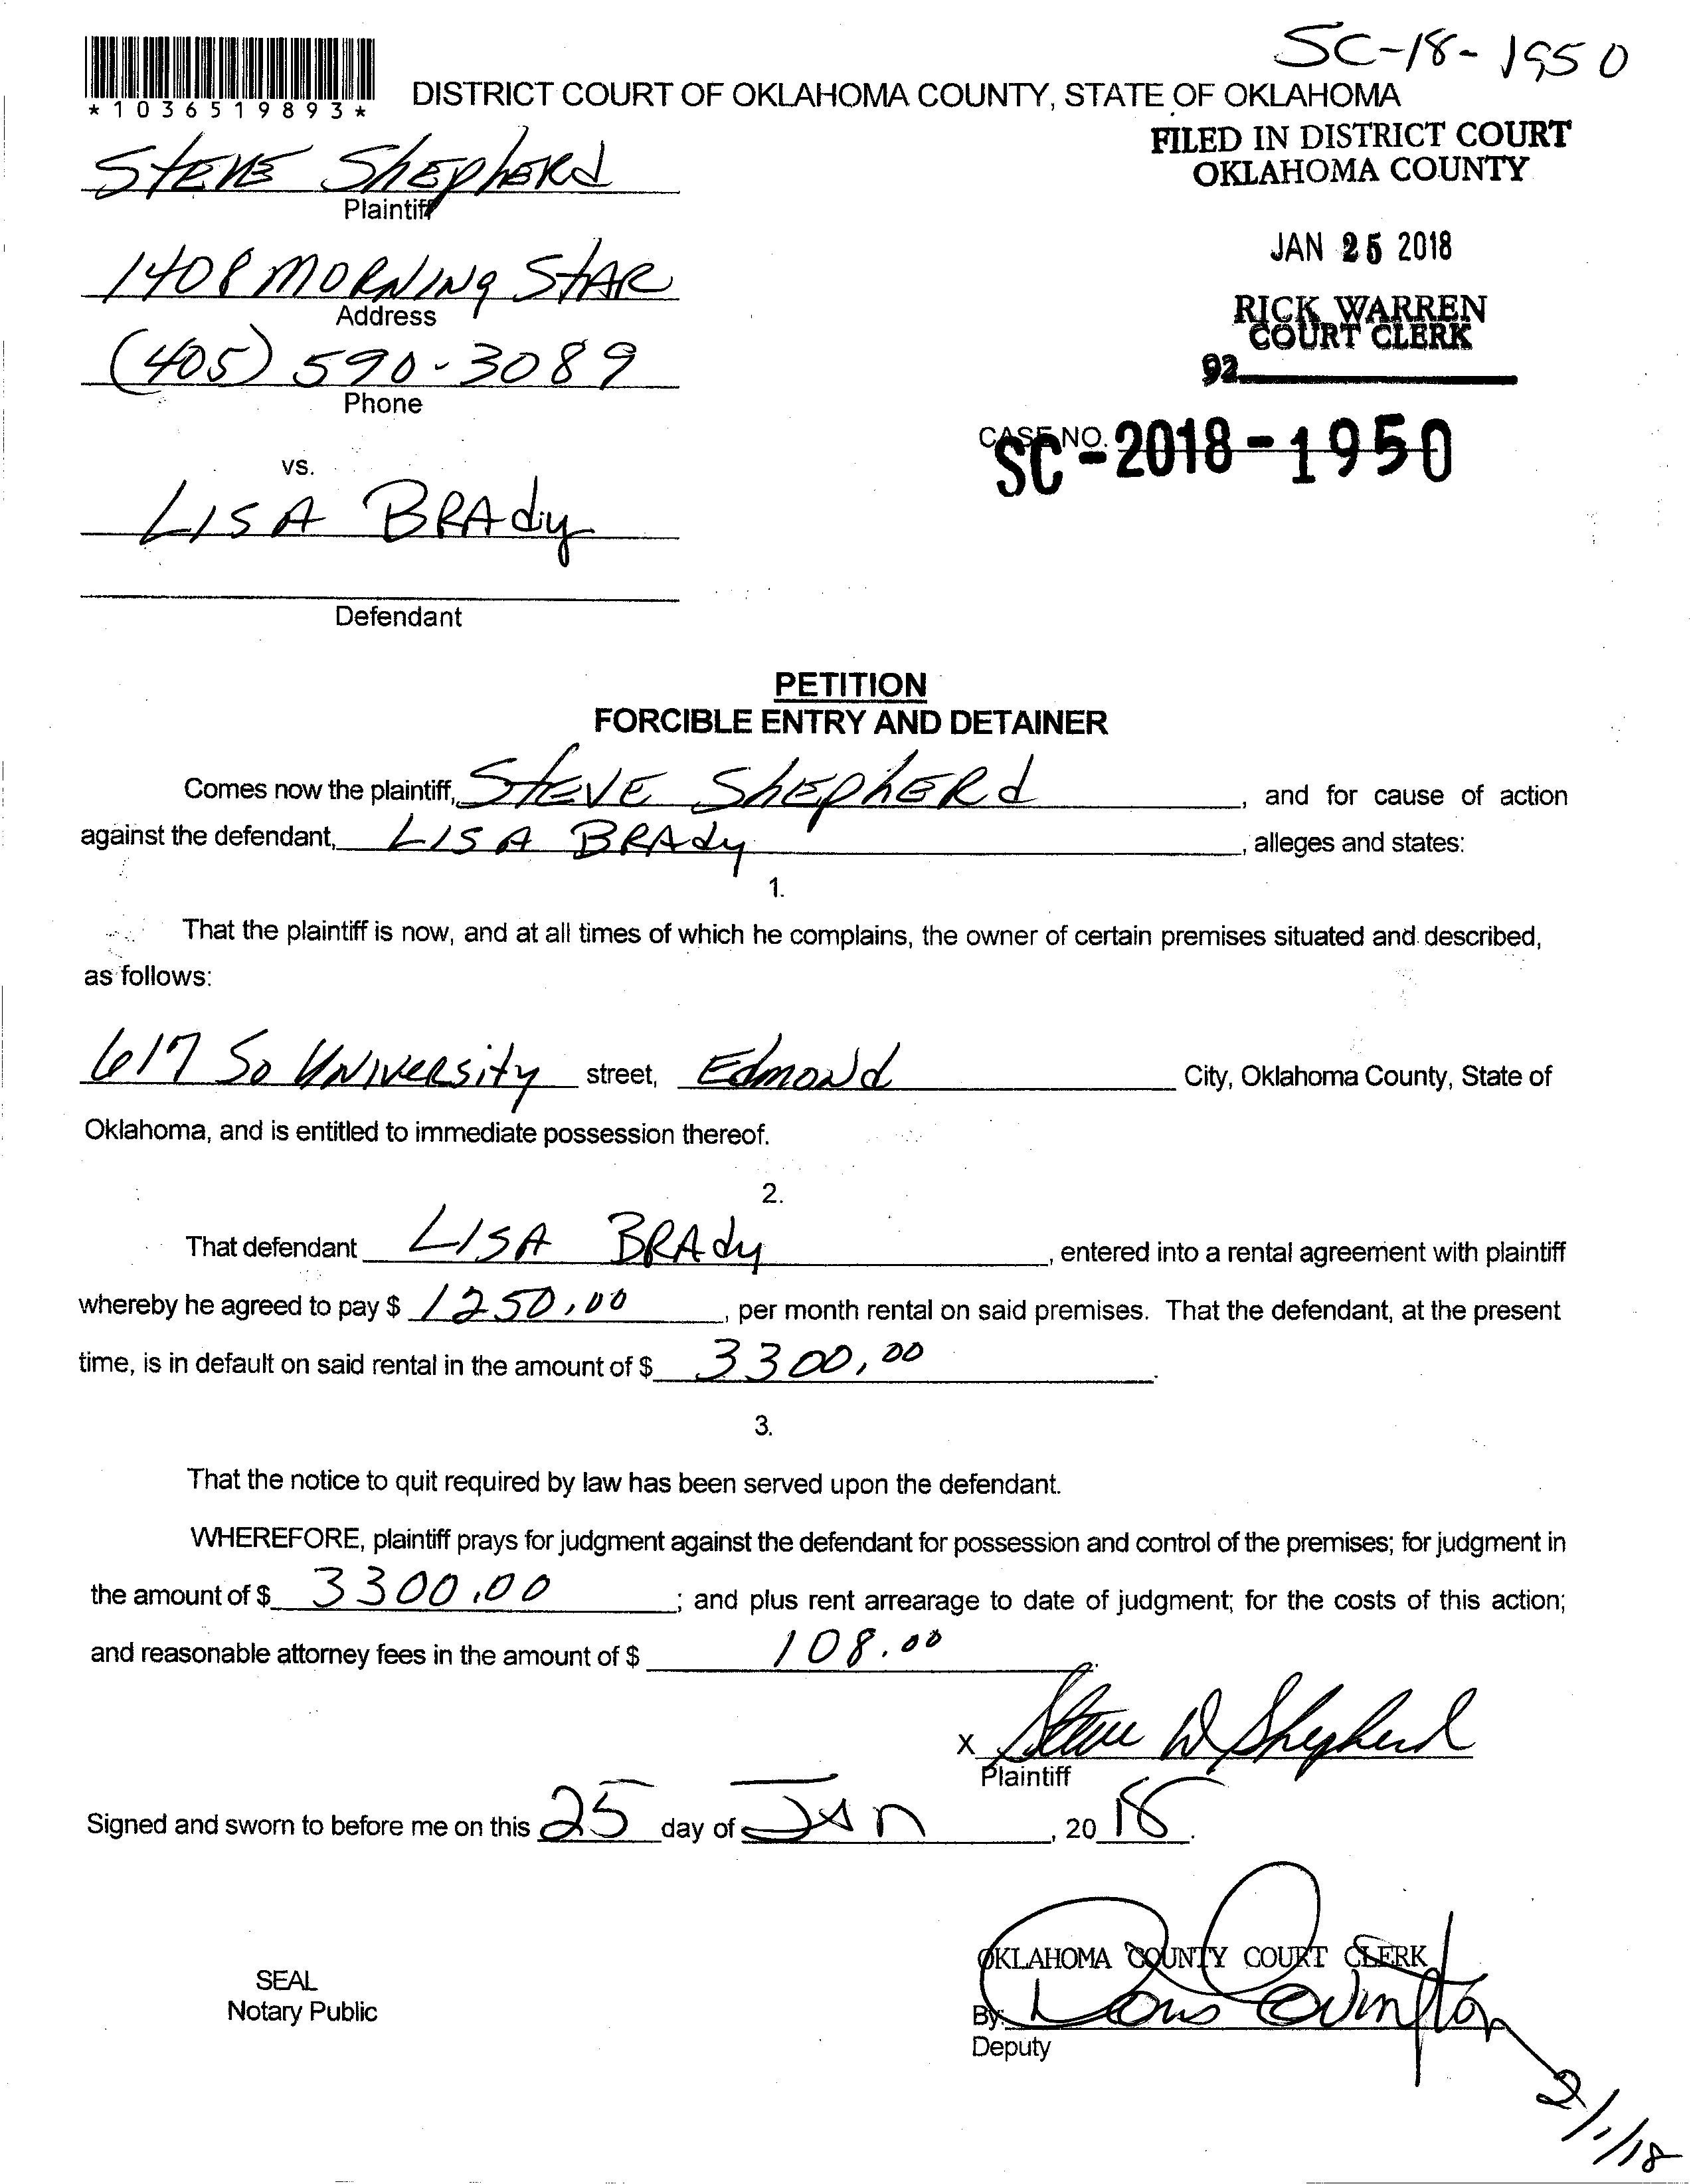 SC-18-1950
*1036519893*
DISTRICT COURT OF OKLAHOMA COUNTY, STATE OF OKLAHOMA
FILED IN DISTRICT COURT
OKLAHOMA COUNTY
STEVE SHEPHERD
Plaintiff
JAN 25 2018
1408 MORNING STAR
Address
RICK WARREN
COURT CLERK
(405) 590-3089
92
Phone
CASE NO. SC-2018-1950
vs.
LISA BRAdy
Defendant
PETITION
FORCIBLE ENTRY AND DETAINER
Comes now the plaintiff, STEVE SHEPHERD, and for cause of action
against the defendant, LISA BRAdy, alleges and states:
1.
That the plaintiff is now, and at all times of which he complains, the owner of certain premises situated and described,
as follows:
617 So UNIVERSITY street, EdmoNd City, Oklahoma County, State of
Oklahoma, and is entitled to immediate possession thereof.
2.
That defendant LISA BRAdy, entered into a rental agreement with plaintiff
whereby he agreed to pay $ 1250.00, per month rental on said premises. That the defendant, at the present
time, is in default on said rental in the amount of $ 3300.00.
3.
That the notice to quit required by law has been served upon the defendant.
WHEREFORE, plaintiff prays for judgment against the defendant for possession and control of the premises; for judgment in
the amount of $ 3300.00; and plus rent arrearage to date of judgment; for the costs of this action;
and reasonable attorney fees in the amount of $ 108.00.
X Steve W Shepherd
Plaintiff
Signed and sworn to before me on this 25 day of Jan, 2018.
OKLAHOMA COUNTY COURT CLERK
SEAL
Notary Public
By: Covington
Deputy
2/1/18